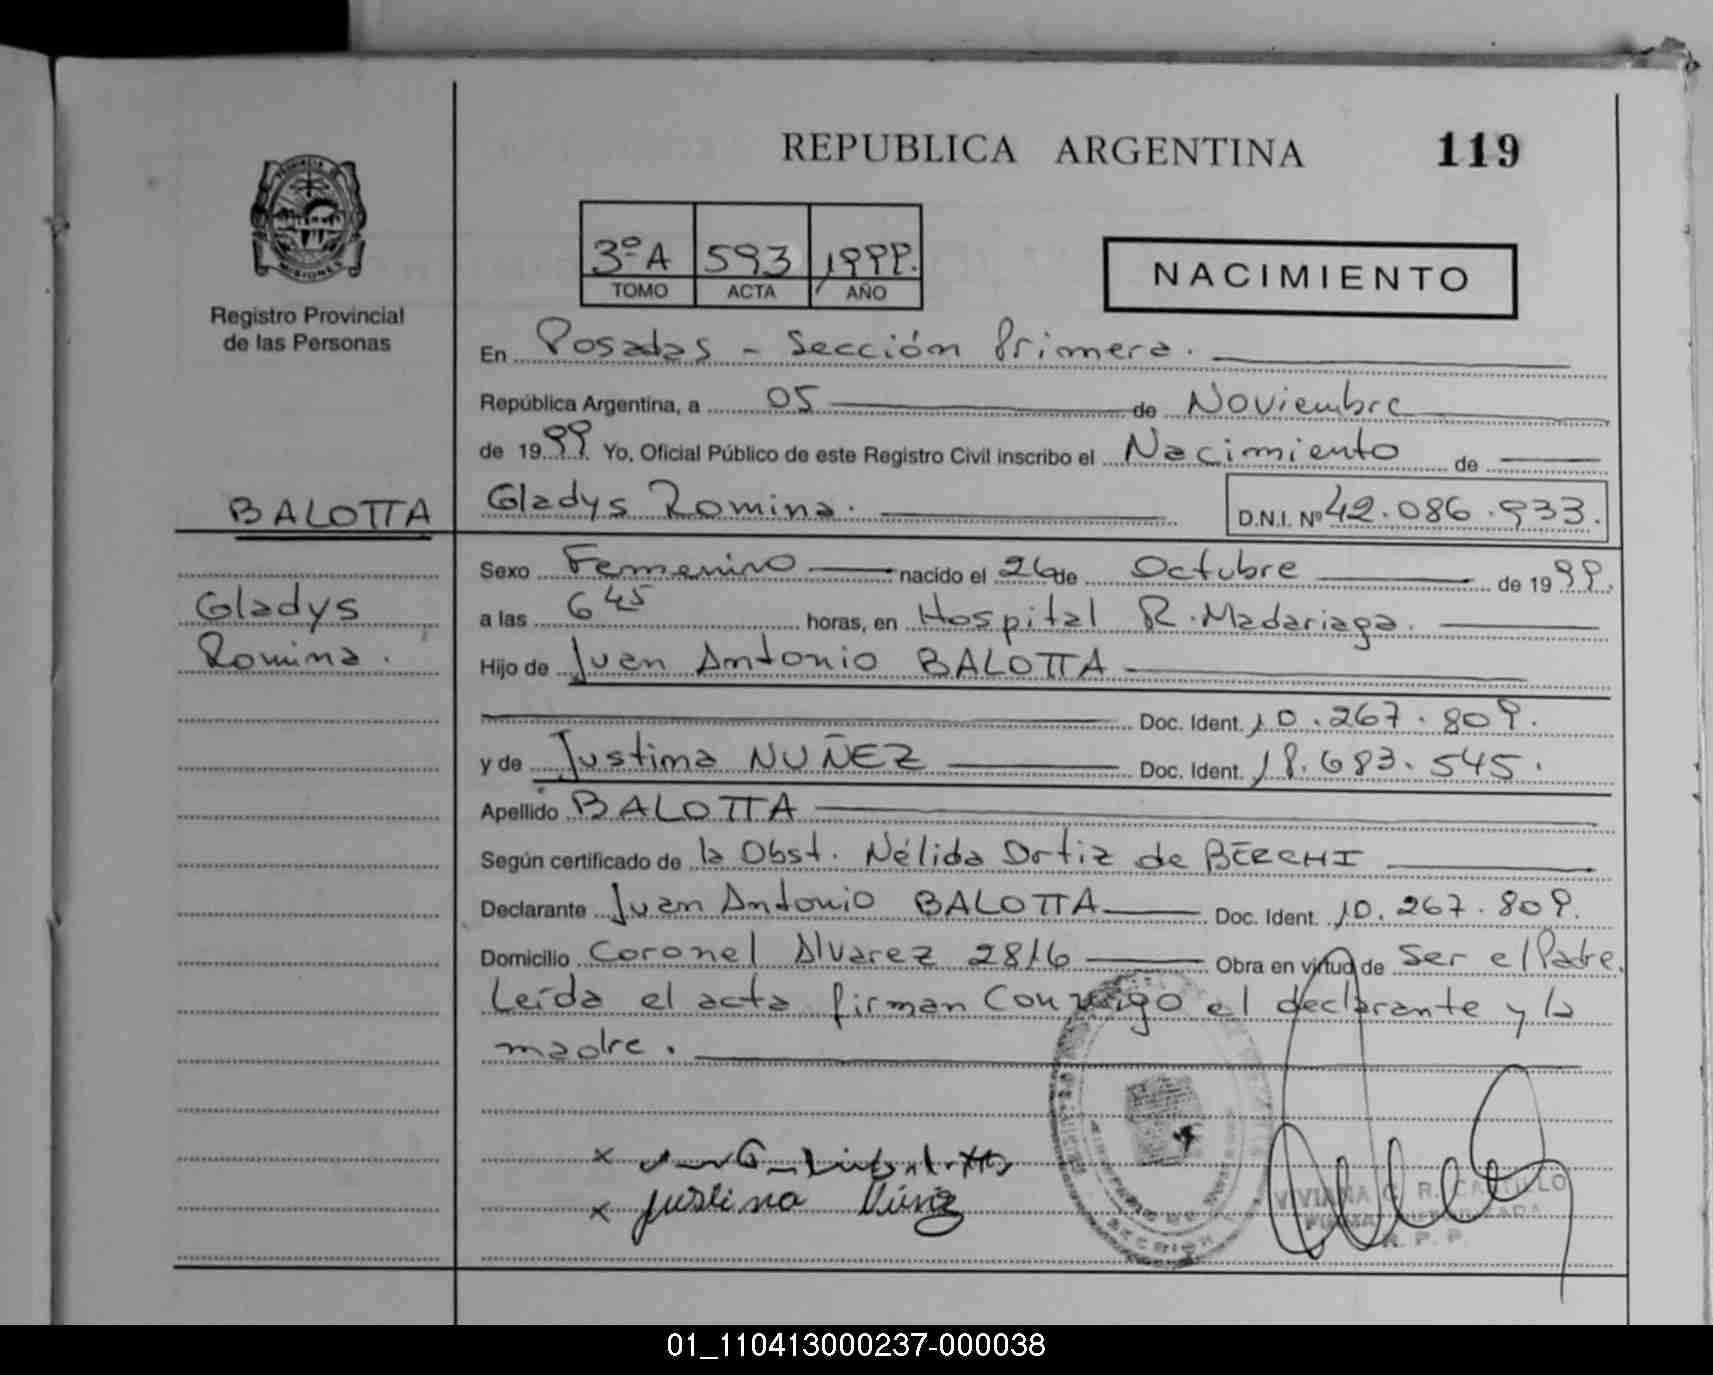 REPUBLICA ARGENTINA 119
PROVINCIA DE
MISIONES
Registro Provincial
de las Personas
3º A 593 1999.
TOMO ACTA AÑO
NACIMIENTO
En Posadas - Sección Primera.
República Argentina, a 05 de Noviembre
de 1999 Yo, Oficial Público de este Registro Civil inscribo el Nacimiento de
BALOTTA
Gladys Romina.
Gladys Romina. D.N.I. Nº 42.086.933.
Sexo Femenino nacido el 26 de Octubre de 1999.
a las 6 45 horas, en Hospital R. Madariaga.
Hijo de Juan Antonio BALOTTA
Doc. Ident. 10.267.809.
y de Justina NUÑEZ Doc. Ident. 18.683.545.
Apellido BALOTTA
Según certificado de la Obst. Nélida Ortiz de BERCHI
Declarante Juan Antonio BALOTTA Doc. Ident. 10.267.809.
Domicilio Coronel Alvarez 2816 Obra en virtud de Ser el Padre.
Leída el acta firman Conmigo el declarante y la
madre.
x
x Justina Núñez
VIVIANA C. R. CASTILLO
FIRMA AUTORIZADA
R. P. P.
01_110413000237-000038